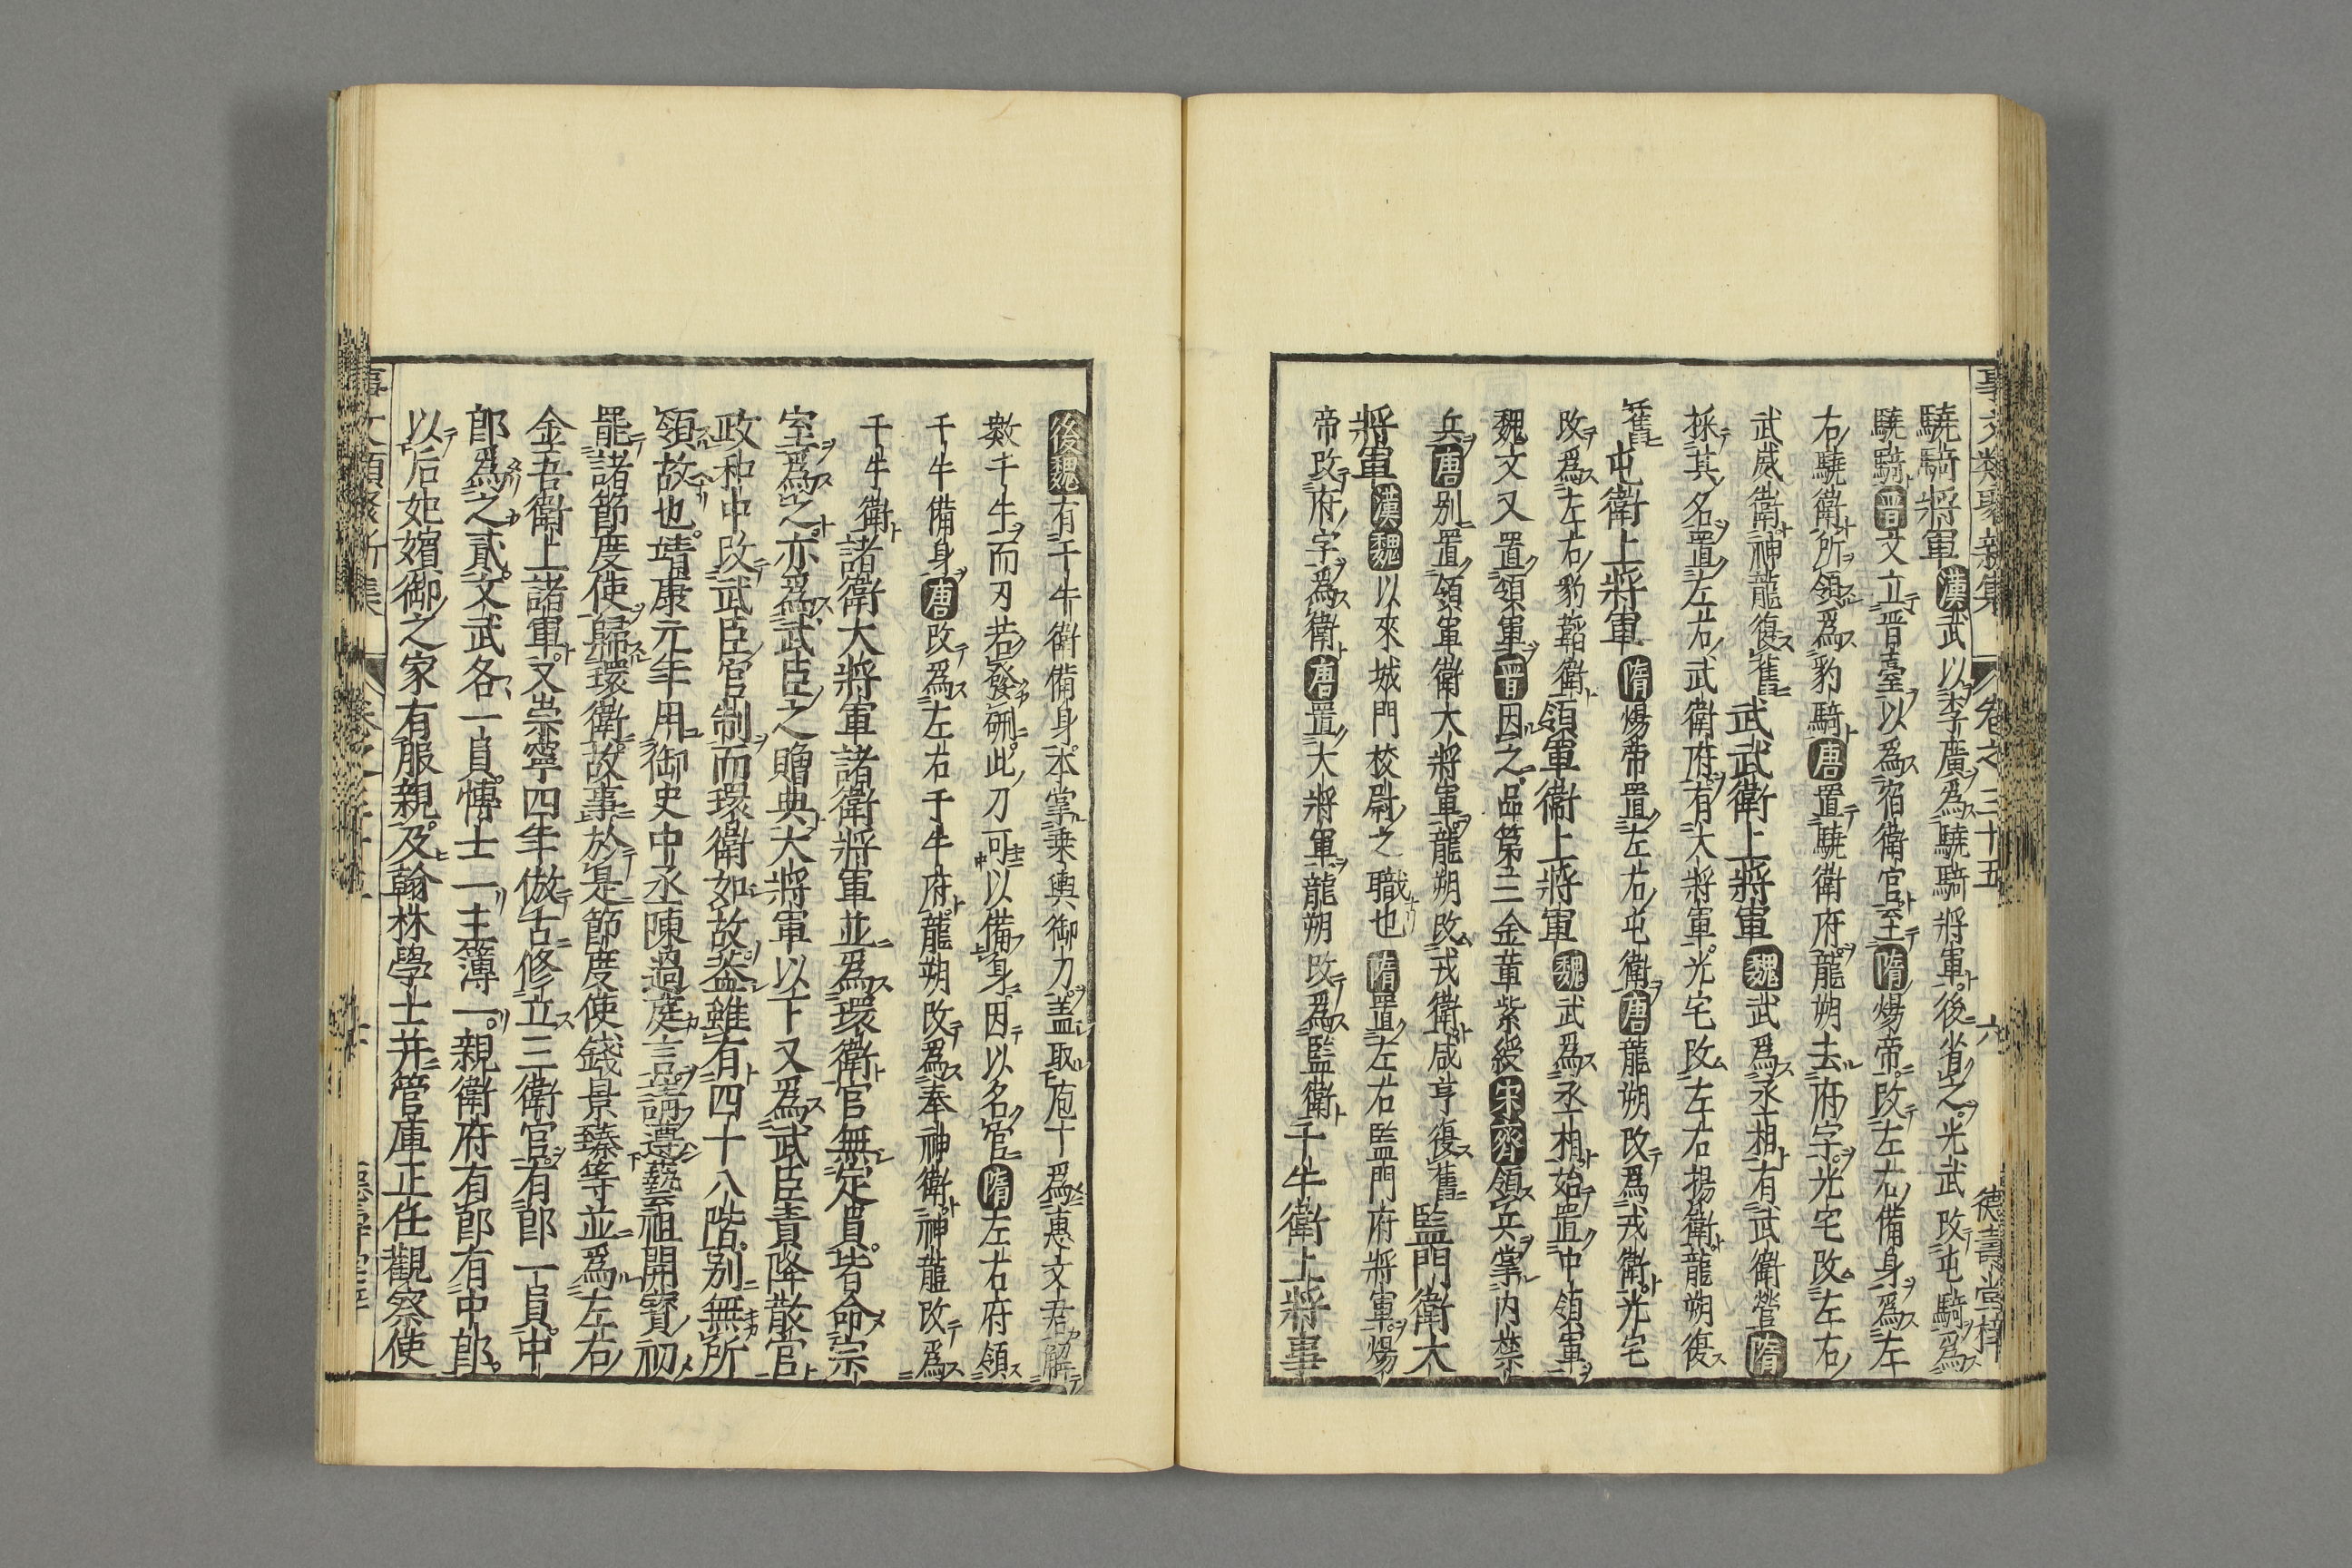 事文類聚新集 卷之三十五 六 德壽堂梓
驍騎將軍漢武以李廣爲驍騎將軍後省之光武改屯騎爲
驍騎晉文立晉臺以爲宿衛官至隋煬帝改左右備身爲左
右驍衛所領爲豹騎唐置驍衛府龍朔去府字光宅改左右
武威衛神龍復舊武武衛上將軍魏武爲丞相有武衛營隋
採其名置左右武衛府有大將軍光宅改左右揚衛龍朔復
舊屯衛上將軍隋煬帝置左右屯衛唐龍朔改爲戎衛光宅
改爲左右豹韜衛領軍衛上將軍魏武爲丞相始置中領軍
魏文又置領軍晉因之品第三金章紫綬宋齊領兵掌内禁
兵唐别置領軍衛大將軍龍朔改戎衛咸亨復舊監門衛大
將軍漢魏以來城門校尉之職也隋置左右監門府將軍煬
帝改府字爲衛唐置大將軍龍朔改爲監衛千牛衛上將事
後魏有千牛衛備身本掌乘輿御刀盖取庖丁爲惠文君解
數千牛而刃若發硎此刀可以備身因以名官隋左右府領
千牛備身唐改爲左右千牛府龍朔改爲奉神衛神龍改爲
千牛衛諸衛大將軍諸衛將軍並爲環衛官無定員皆命宗
室爲之亦爲武臣之贈典大將軍以下又爲武臣責降散官
政和中改武臣官制而環衛如故盖雖有四十八階别無所
領故也靖康元年用御史中丞陳過庭言請遵藝祖開寳初
罷諸節度使歸環衛故事於是節度使錢景臻等並爲左右
金吾衛上諸軍又崇寧四年倣古修立三衛官有郎一員中
郎爲之貳文武各一員博士一主簿一親衛府有郎有中郎
以后妃嬪御之家有服親及翰林學士并管庫正任觀察使